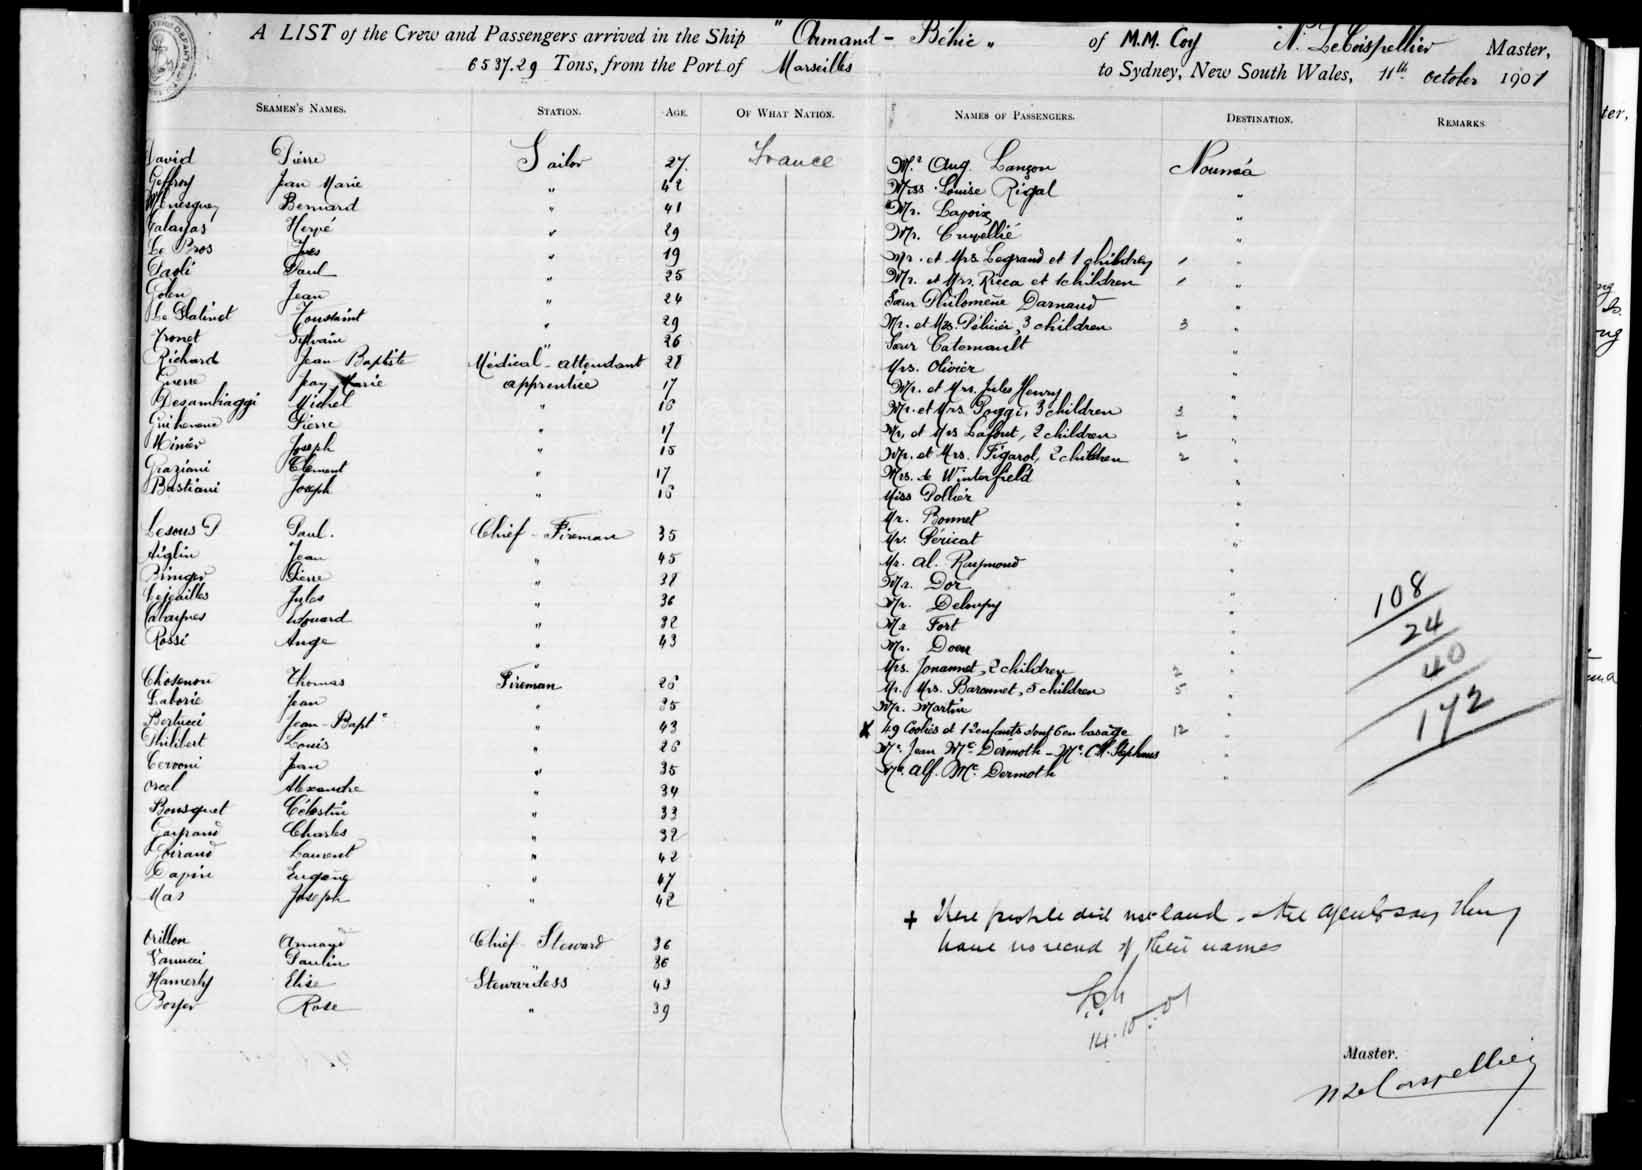 A LIST of the Crew and Passengers arrived in the Ship "Armand-Béhic" of M.M. Coy N. Le Coispellier Master,
6537.29 Tons, from the Port of Marseilles to Sydney, New South Wales, 11th October 1901
SEAMEN'S NAMES. STATION. AGE. OF WHAT NATION.
David Pierre Sailor 27 France
Geffroy Jean Marie " 42
Bernard " 41
Hervé " 29
Le Bros Yves " 19
Paoli Paul " 25
Golen Jean " 24
Toussaint " 29
Tronet Sylvain " 26
Richard Jean Baptiste Medical-attendant 28
Jean Marie apprentice 17
Desambiaggi Michel " 16
Pierre " 17
Minier Joseph " 15
Graziani Clément " 17
Bastiani Joseph " 16
Paul. Chief-Fireman 35
Aiglin Jean " 45
Pierre " 38
Jules " 36
" 32
Rossi Ange " 43
Thomas Fireman 26
Laborie Jean " 35
Bertucci Jean-Bapte " 43
Philibert Louis " 26
Cervoni Jean " 35
Alexandre " 34
Bousquet Célestin " 33
Charles " 32
Giraud Laurent " 42
Eugène " 47
Mas Joseph " 42
Orillon Chief-Steward 36
Vanucci Paulin " 36
Hamerly Elise Stewardess 43
Boyer Rose " 39
NAMES OF PASSENGERS. DESTINATION. REMARKS
Mr. Aug. Lançon Nouméa
Miss Louise Rigal "
Mr. Lapoix "
Mr. Cruvellié "
Mr. et Mrs. Legrand et 1 children 1 "
Mr. et Mrs. Ricca et 1 children 1 "
Sœur Philomène Darnaud "
Mr. et Mrs. Pélicier, 3 children 3 "
Sœur Catemault "
Mrs. Olivier "
Mr. et Mrs. Jules Henry "
Mr. et Mrs. Poggi, 3 children 3 "
Mr. et Mrs Lafont, 2 children 2 "
Mr. et Mrs. Figarol, 2 children 2 "
Mrs. de Winterfield "
Miss Pollier "
Mr. Bonnet "
Mr. Péricat "
Mr. Al. Raymond
Mr. Dor "
Mr. Deloupy "
Mr Fort "
Mr. "
Mrs. Jouannet, 2 children 2 "
Mr. Mrs. Baronnet, 5 children 5 "
Mr. Martin "
X 49 Coolies et 12 enfants dont 6 en bas age 12 "
Mr. Jean Mc. Dermoth - Mr. Ch. Stephens "
Mr. Alf. Mc. Dermoth "
108
24
40
172
+ These people did not land - the agents say they
have no record of their names
14.10.01
Master.
N Le Coispellier